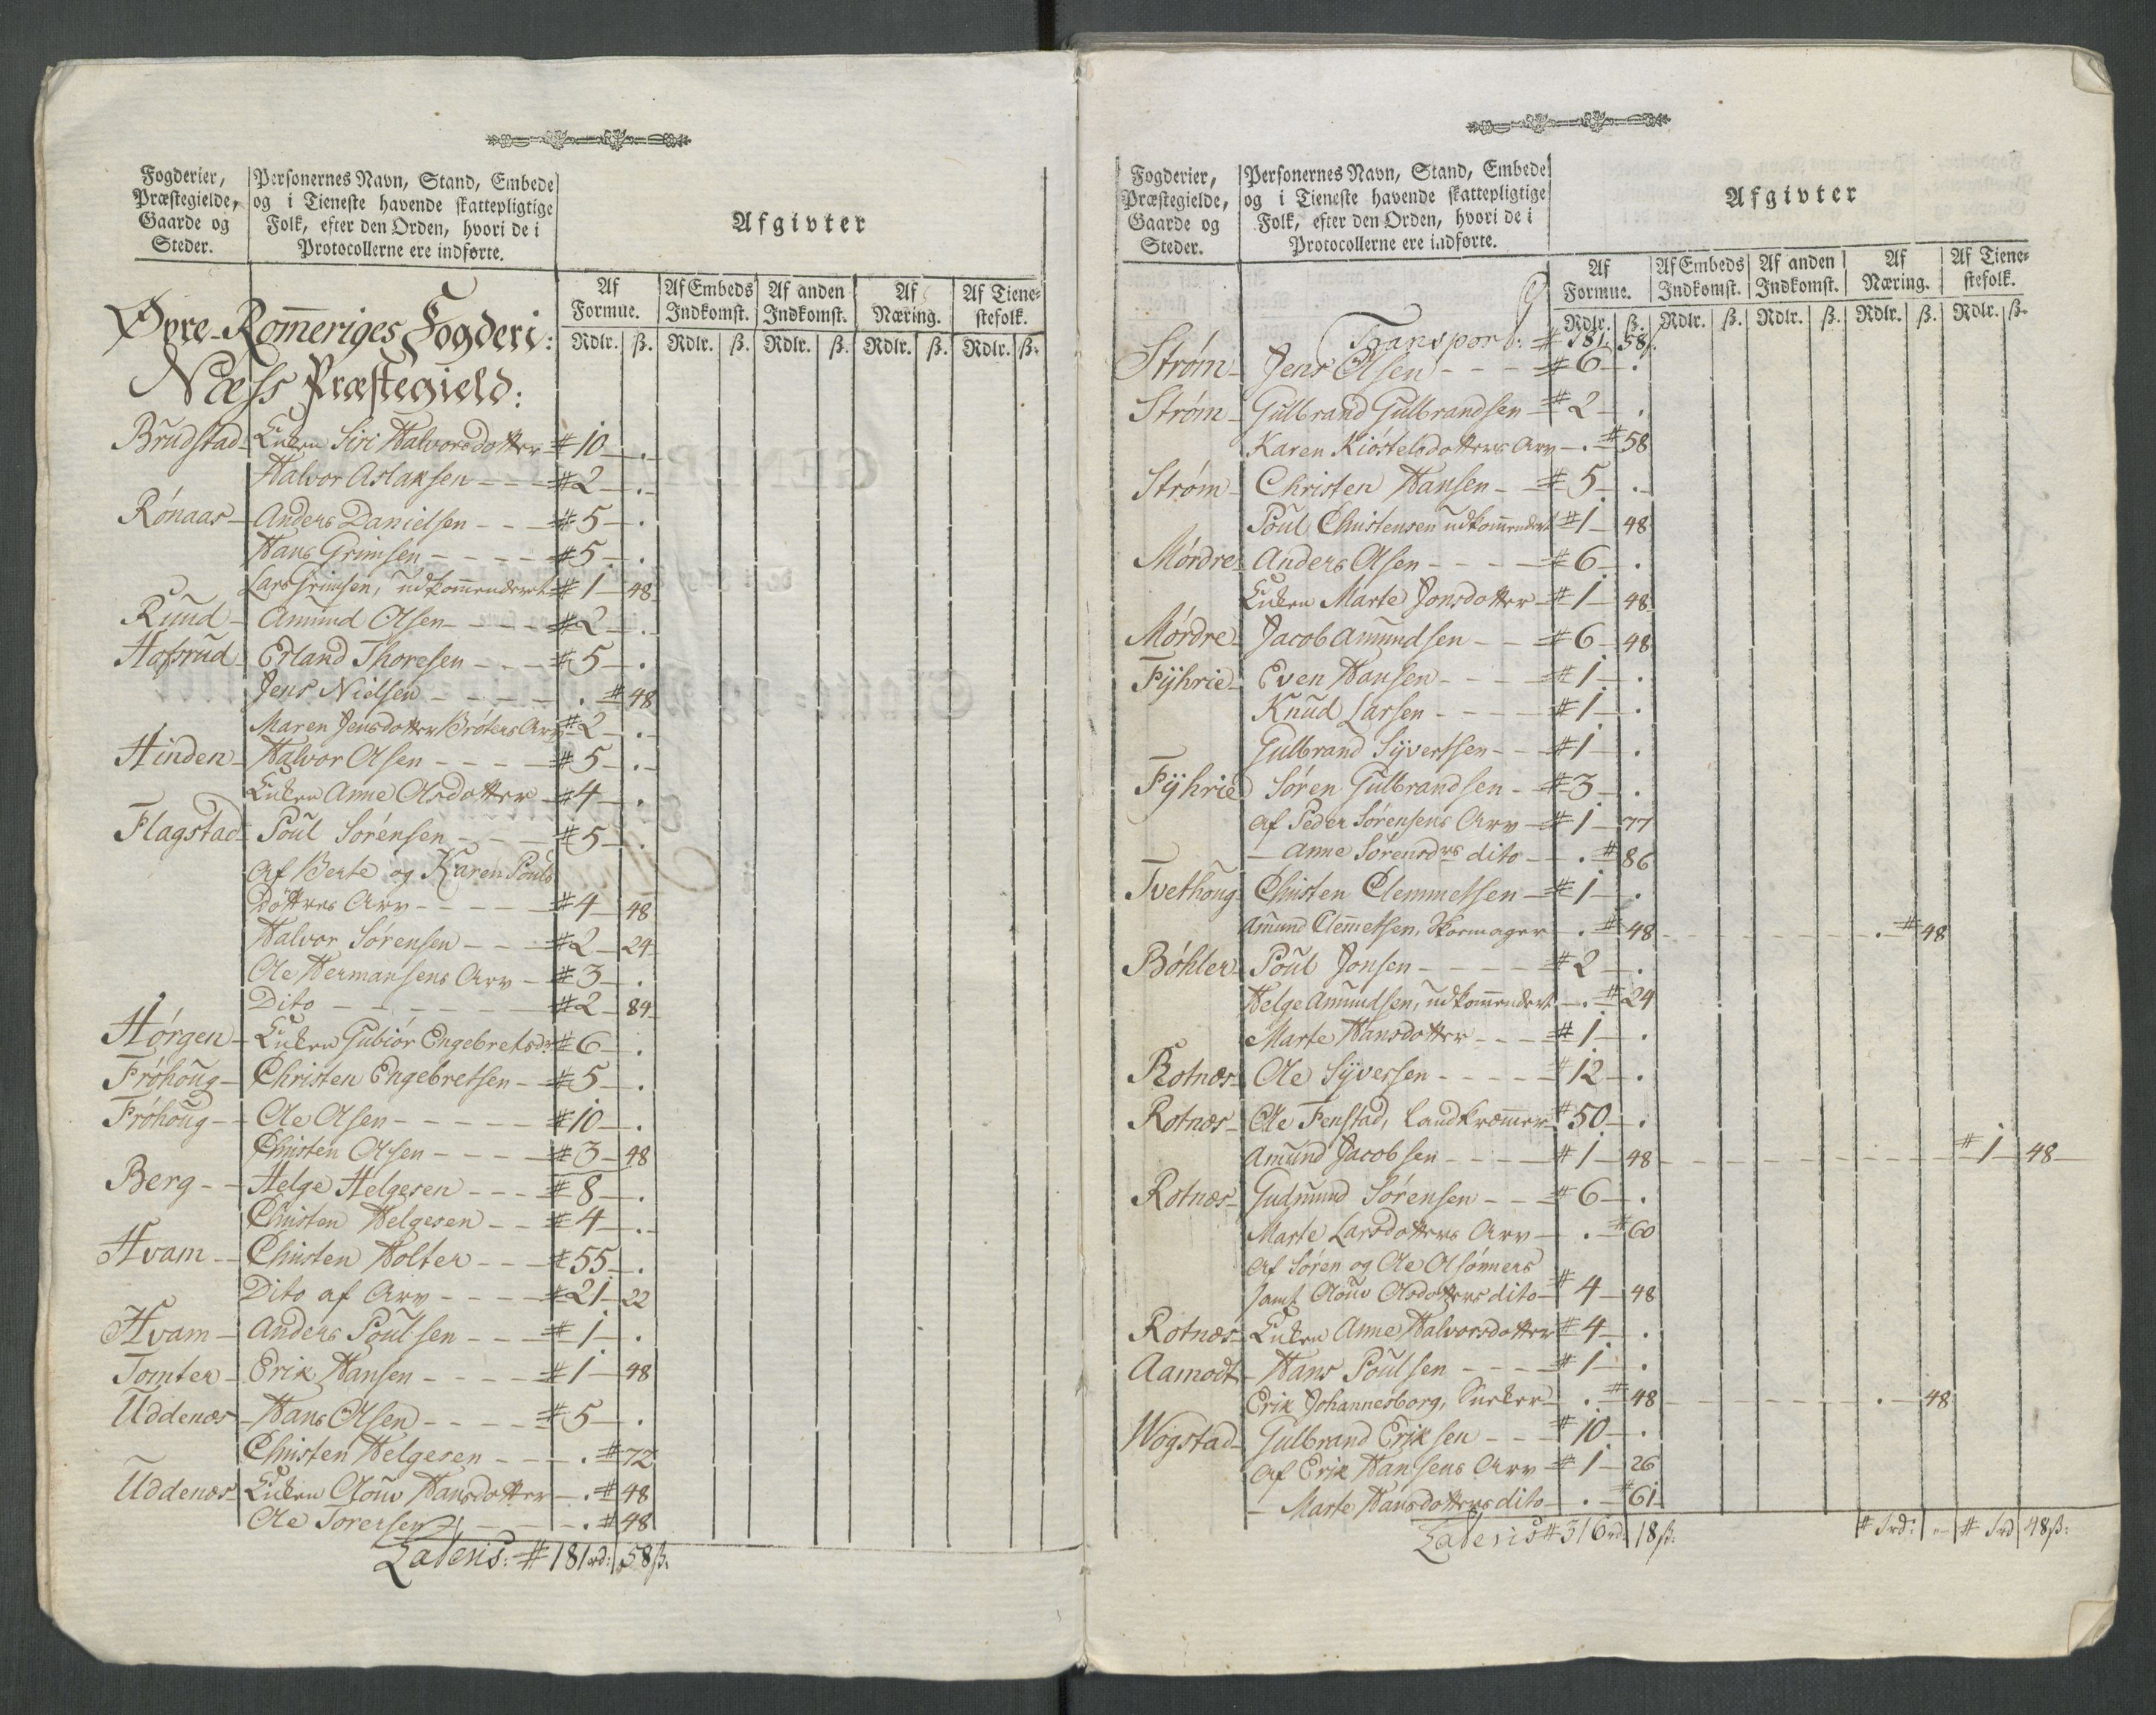 Fogderier, Præstegielde, Gaarde og Steder.
Personernes Navn, Stand, Embede og i Tieneste havende skattepligtige Folk, efter den Orden, hvori de i Protocollerne ere indførte.
Afgivter
Af Formue. Af Embeds Indkomst. Af anden Indkomst. Af Næring. Af Tienestefolk.
Rdlr. ß. Rdlr. ß. Rdlr. ß. Rdlr. ß. Rdlr. ß.
Øvre-Rom̅eriges Fogderi:
Næss Præstegield:
Brudstad - Enken Siri Halvorsdotter # 10 - .
Halvor Aslaksen - - - # 2 - . -
Rónaas - Anders Danielsen - - - # 5 - .
Hans Grimsen - - - - # 5 - .
Lars Grimsen, udkom̅enderet # 1 - 48
Ruud - Amund Olsen - - - - # 2 - . -
Hofsrud - Erland Thoresen - - - # 5 - .
Jens Nielsen - - - - - . # 48
Maren Jensdotter Brótens Arv # 2 - . -
Hinden - Halvor Olsen - - - - # 5 - . -
Enken Anne Olsdotter - # 4 - .
Flagstad - Poul Sórensen - - - # 5 - .
Af Berte og Karen Pouls
Döttres Arv - - - - - # 4 - 48
Halvor Sórensen - - - # 2 - 24
Ole Hermansens Arv - # 3 - .
Dito - - - - - - # 2 - 84
Hórgen - Enken Gubiór Engebretsdr # 6 - .
Fróhoug - Christen Engebretsen - # 5 - .
Fróhoug - - Ole Olsen - - - - - # 10 - .
Christen Olsen - - - - # 3 - 48
Berg - - Helge Helgesen - - - # 8 - .
Christen Helgesen - - # 4 - . -
Hvam - - Christen Holter - - - # 55 - .
Dito af Arv - - - - # 21 - 22
Hvam - Anders Poulsen - - - # 1 - .
Tomter - Erik Hansen - - - - # 1 - 48
Uddenæs - Hans Olsen - - - - # 5 - .
Christen Helgesen - - - . # 72
Uddenæs - Enken Olouv Hansdotter - . # 48
Ole Torersen - - - . # 48
Lateris: # 181 rd: 58 ß.
Fogderier, Præstegielde, Gaarde og Steder.
Personernes Navn, Stand, Embede og i Tieneste havende skattepligtige Folk, efter den Orden, hvori de i Protocollerne ere indførte.
Afgivter
Af Formue. Af Embeds Indkomst. Af anden Indkomst. Af Næring. Af Tienestefolk.
Rdlr. ß. Rdlr. ß. Rdlr. ß. Rdlr. ß. Rdlr. ß.
Transport: # 181. 58 ß.
Strøm - Jens Olsen - - - # 6 - .
Strøm - Gulbrand Gulbrandsen - # 2 - .
Karen Kióstelsdotters Arv - . # 58
Strøm - Christen Hansen - # 5 - . -
Poul Christensen udkom̅endert # 1 - 48
Mórdre - Anders Olsen - - - - # 6 - .
Enken Marte Jonsdotter - # 1 - 48
Mórdre - Jacob Amundsen - - # 6 - 48
Fÿhrie - Even Hansen - - - - # 1 - .
Knud Larsen - - - - # 1 - .
Gulbrand Sÿvertsen - - # 1 - .
Fÿhrie Sóren Gulbrandsen - # 3 - .
Af Peder Sórensens Arv - # 1 - 77
- Anne Sórensdrs dito - - . # 86
Tvethoug - Christen Clemmetsen - # 1 - .
Amund Clem̅etsen, Skoemager - . # 48 - - - . # 48
Bóhler - Poul Jonsen - - - - # 2 - .
Helge Amundsen, udkom̅endert - . # 24
Marte Hansdotter - - - # 1 - .
Rotnæs - Ole Sÿversen - - - - # 12 - .
Rotnæs - Ole Fenstad, Landkræm̅er # 50 - .
Amund Jacobsen - - - # 1 - 48 - - - # 1 - 48 -
Rotnæs - Gudmund Sórensen - - # 6 - .
Marte Larsdotters Arv - . # 60
Af Sóren og Ole Olsónners
Samt Olouv Olsdotters dito - # 4 - 48
Rotnæs - Enken Anne Halvorsdotter # 4 - .
Aamodt - Hans Poulsen - - - - # 1 - .
Erik Johannesborg, Sneker - . # 48 - - - . - 48
Wogstad - Gulbrand Eriksen - - # 10 - .
Af Erik Hansens Arv # 1 - 26
- Marte Hansdotters dito - . # 61
Lateris # 316 rd. 18 ß. # 1 rd: " - # 1 rd 48 ß: